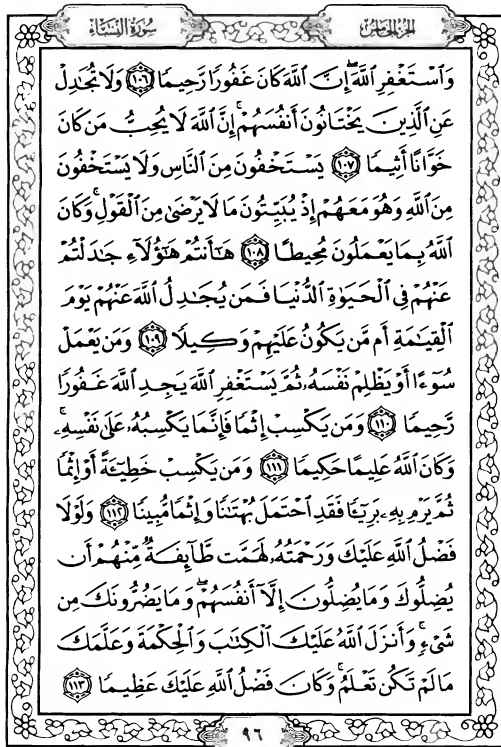 سُورَةُ النِّسَاءِ
الجُزْءُ الخَامِسُ
وَٱسْتَغْفِرِ ٱللَّهَۖ إِنَّ ٱللَّهَ كَانَ غَفُورًا رَّحِيمًا ١٠٦ وَلَا تُجَٰدِلْ
عَنِ ٱلَّذِينَ يَخْتَانُونَ أَنفُسَهُمْۚ إِنَّ ٱللَّهَ لَا يُحِبُّ مَن كَانَ
خَوَّانًا أَثِيمًا ١٠٧ يَسْتَخْفُونَ مِنَ ٱلنَّاسِ وَلَا يَسْتَخْفُونَ
مِنَ ٱللَّهِ وَهُوَ مَعَهُمْ إِذْ يُبَيِّتُونَ مَا لَا يَرْضَىٰ مِنَ ٱلْقَوْلِۚ وَكَانَ
ٱللَّهُ بِمَا يَعْمَلُونَ مُحِيطًا ١٠٨ هَٰٓأَنتُمْ هَٰٓؤُلَآءِ جَٰدَلْتُمْ
عَنْهُمْ فِى ٱلْحَيَوٰةِ ٱلدُّنْيَا فَمَن يُجَٰدِلُ ٱللَّهَ عَنْهُمْ يَوْمَ
ٱلْقِيَٰمَةِ أَم مَّن يَكُونُ عَلَيْهِمْ وَكِيلًا ١٠٩ وَمَن يَعْمَلْ
سُوٓءًا أَوْ يَظْلِمْ نَفْسَهُۥ ثُمَّ يَسْتَغْفِرِ ٱللَّهَ يَجِدِ ٱللَّهَ غَفُورًا
رَّحِيمًا ١١٠ وَمَن يَكْسِبْ إِثْمًا فَإِنَّمَا يَكْسِبُهُۥ عَلَىٰ نَفْسِهِۦۚ
وَكَانَ ٱللَّهُ عَلِيمًا حَكِيمًا ١١١ وَمَن يَكْسِبْ خَطِيٓـَٔةً أَوْ إِثْمًا
ثُمَّ يَرْمِ بِهِۦ بَرِيٓـًٔا فَقَدِ ٱحْتَمَلَ بُهْتَٰنًا وَإِثْمًا مُّبِينًا ١١٢ وَلَوْلَا
فَضْلُ ٱللَّهِ عَلَيْكَ وَرَحْمَتُهُۥ لَهَمَّت طَّآئِفَةٌ مِّنْهُمْ أَن
يُضِلُّوكَ وَمَا يُضِلُّونَ إِلَّآ أَنفُسَهُمْۖ وَمَا يَضُرُّونَكَ مِن
شَىْءٍۚ وَأَنزَلَ ٱللَّهُ عَلَيْكَ ٱلْكِتَٰبَ وَٱلْحِكْمَةَ وَعَلَّمَكَ
مَا لَمْ تَكُن تَعْلَمُۚ وَكَانَ فَضْلُ ٱللَّهِ عَلَيْكَ عَظِيمًا ١١٣
٩٦